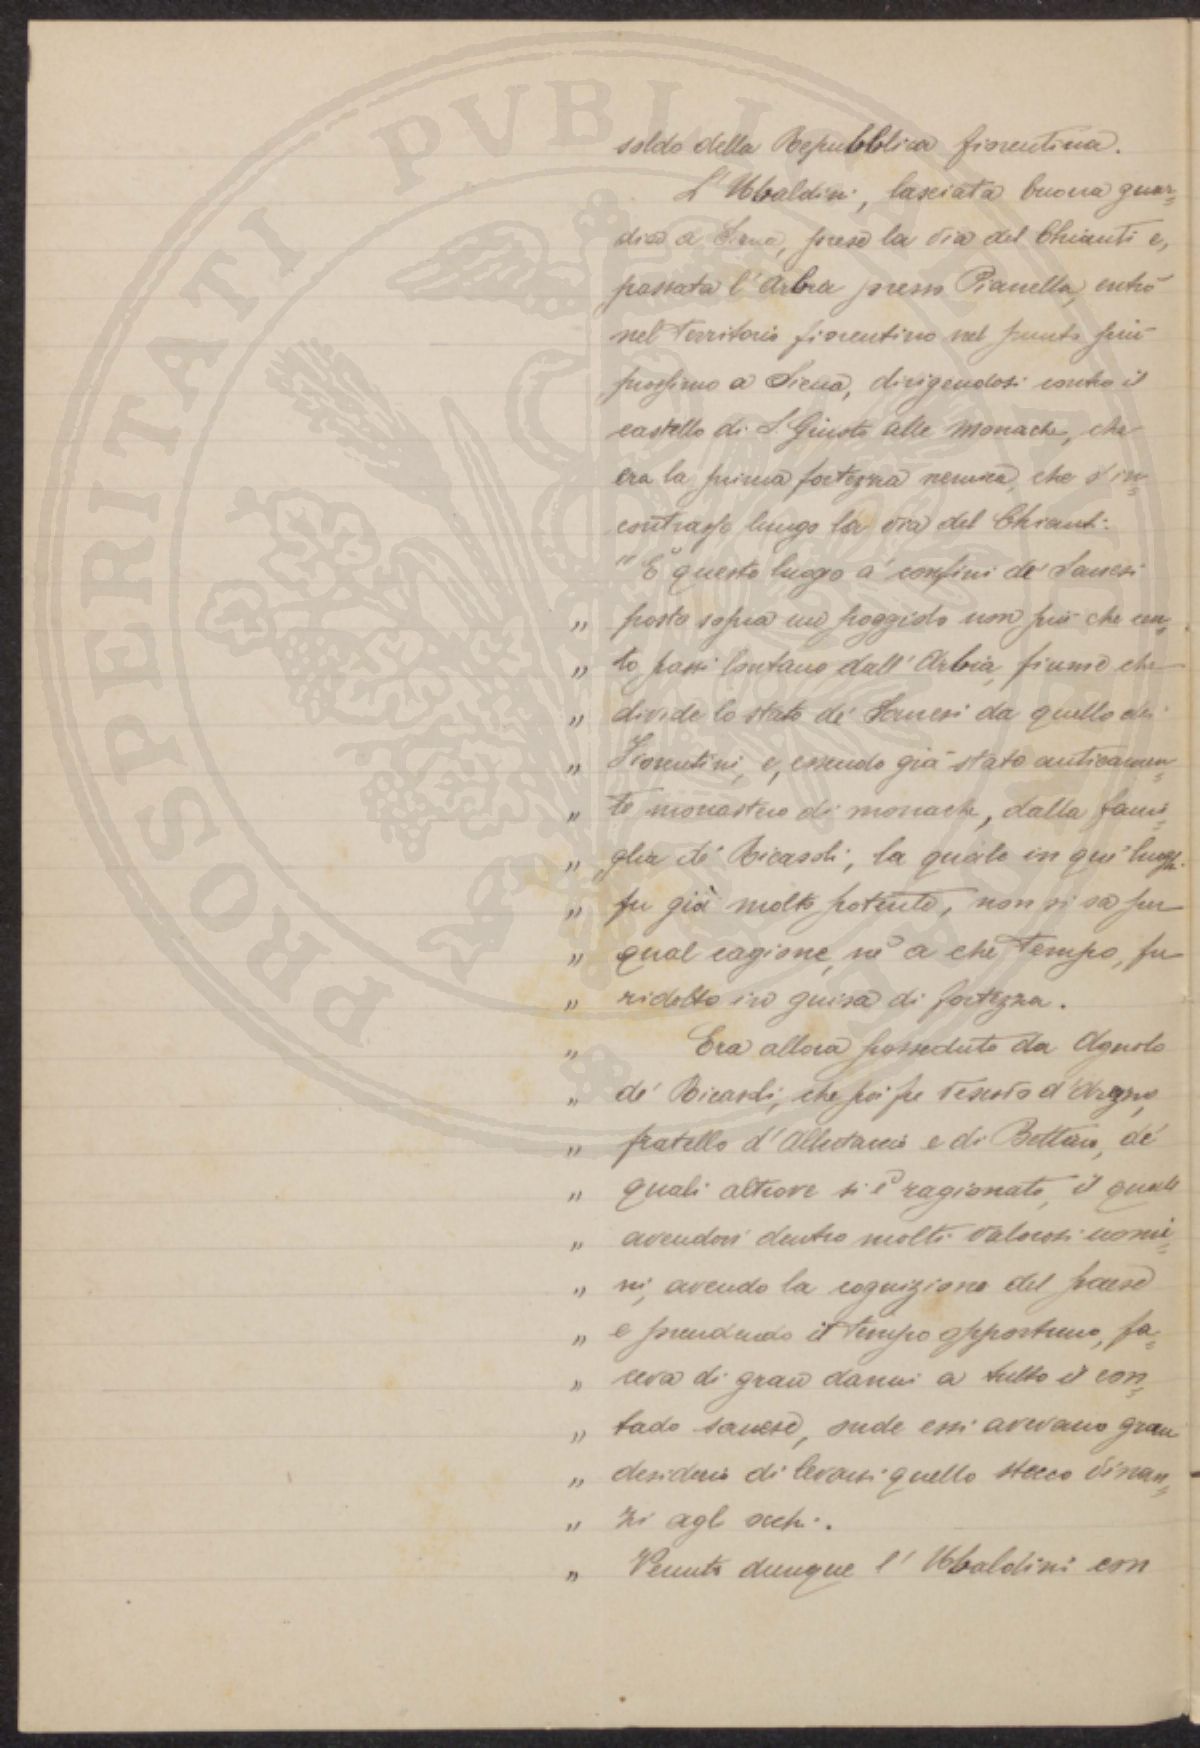 PROSPERITATI PVBLI
soldo della Repubblica fiorentina.
L'Ubaldini, lasciata buona guar=
dia a Siena, prese la via del Chianti e,
passata l'Arbia presso Pianella, entrò
nel territorio fiorentino nel punto più
prossimo a Siena, dirigendosi contro il
castello di S. Giusto alle Monache, che
era la prima fortezza nemica, che s'in=
contrasse lungo la via del Chianti:
"È questo luogo a' confini de' Sanesi
" posto sopra un poggiolo non più che cen=
" to passi lontano dall'Arbia, fiume che
" divide lo stato de' Sanesi da quello dei
" Fiorentini, e, essendo già stato anticamen=
" te monastero di monache, dalla fami=
" glia de' Ricasoli, la quale in que' luoghi
" fu già molto potente, non si sa per
" qual cagione, nè a che tempo, fu
" ridotto in guisa di fortezza.
" Era allora posseduto da Agnolo
" de' Ricasoli, che poi fu vescovo d'Arezzo,
" fratello d'Albertaccio e di Bettino, de'
" quali altrove si è ragionato, il quale
" avendovi dentro molti valorosi uomi=
" ni, avendo la cognizione del paese
" e prendendo il tempo opportuno, fa=
" ceva di gran danni a tutto il con=
" tado sanese, onde essi avevano gran
" desiderio di levarsi quello stecco dinan=
" zi agli occhi.
" Venuto dunque l'Ubaldini con